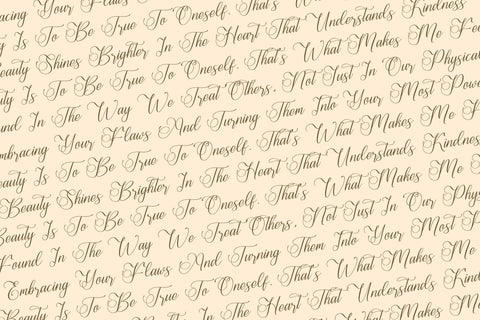 Your
Is To Be True To Oneself. That's
Beauty Shines Brighter In The Heart That Understands Kindness
Is To Be True To Oneself. That's What Makes Me
In The Way We Treat Others, Not Just In Our Physical
Embracing Your Flaws And Turning Them Into Your Most
Beauty Is To Be True To Oneself. That's What Makes Me
Beauty Shines Brighter In The Heart That Understands Kindness
Beauty Is To Be True To Oneself. That's What Makes Me
Found In The Way We Treat Others, Not Just In Our
Embracing Your Flaws And Turning Them Into Your Most
Beauty Is To Be True To Oneself. That's What Makes Me
In The Heart That Understands